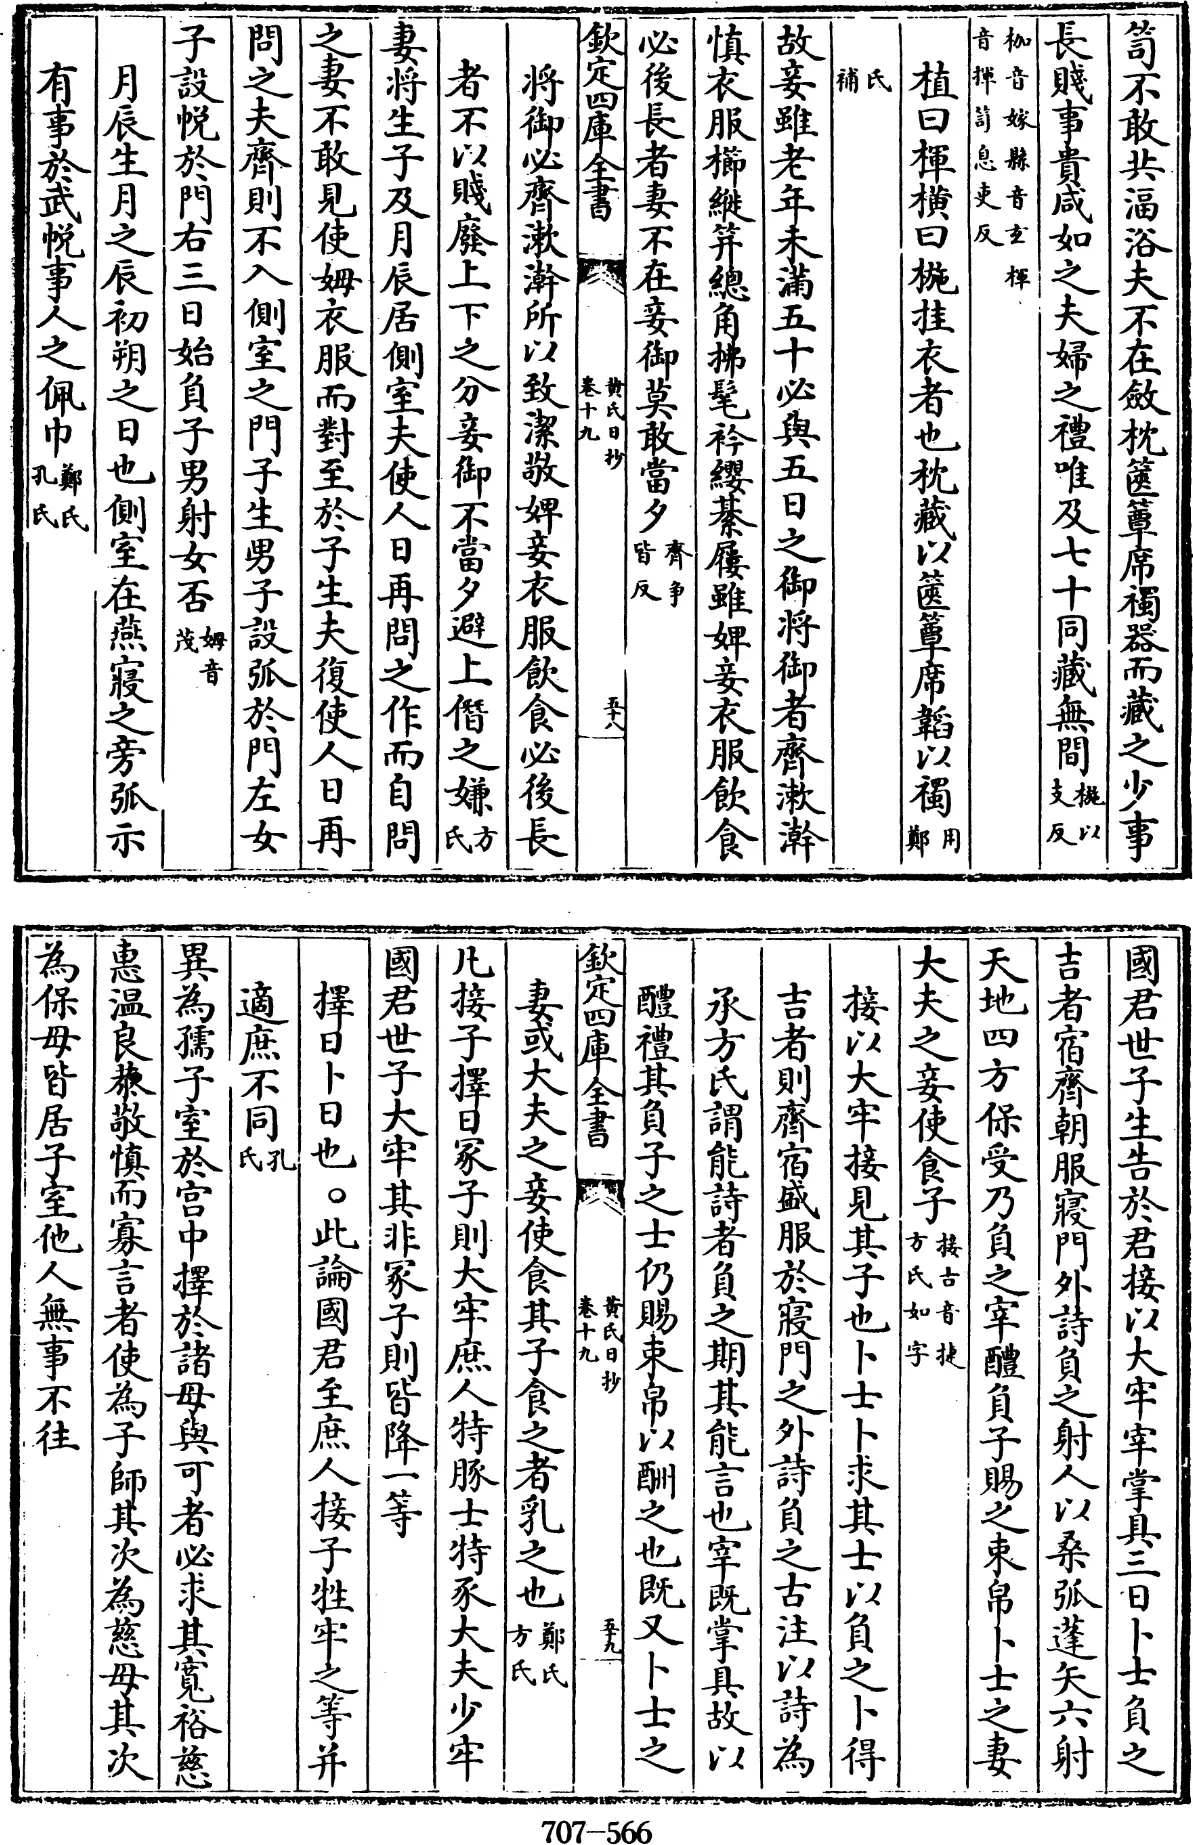 笥不敢共湢浴夫不在斂枕篋簟席襡器而藏之少事
長賤事貴咸如之夫婦之禮唯及七十同藏無間椸以支反
枷音嫁縣音𤣥楎音揮笥息吏反
植曰楎横曰椸挂衣者也枕藏以篋簟席韜以襡用鄭氏補
故妾雖老年未滿五十必與五日之御將御者齊漱澣
慎衣服櫛縰筓總角拂髦衿纓綦屨雖婢妾衣服飲食
必後長者妻不在妾御莫敢當夕齊爭皆反
欽定四庫全書
黄氏日抄
卷十九
五十八
將御必齊漱澣所以致潔敬婢妾衣服飲食必後長
者不以賤廢上下之分妾御不當夕避上僭之嫌方氏
妻將生子及月辰居側室夫使人日再問之作而自問
之妻不敢見使姆衣服而對至於子生夫復使人日再
問之夫齊則不入側室之門子生男子設弧於門左女
子設帨於門右三日始負子男射女否姆音茂
月辰生月之辰初朔之日也側室在燕寢之旁弧示
有事於武帨事人之佩巾鄭氏孔氏
國君世子生告於君接以大牢宰掌具三日卜士負之
吉者宿齊朝服寢門外詩負之射人以桑弧蓬矢六射
天地四方保受乃負之宰醴負子賜之束帛卜士之妻
大夫之妾使食子接古音捷方氏如字
接以大牢接見其子也卜士卜求其士以負之卜得
吉者則齊宿盛服於寢門之外詩負之古注以詩為
承方氏謂能詩者負之期其能言也宰既掌具故以
醴禮其負子之士仍賜束帛以酬之也既又卜士之
欽定四庫全書
黄氏日抄
卷十九
五十九
妻或大夫之妾使食其子食之者乳之也鄭氏方氏
凡接子擇日冢子則大牢庶人特豚士特豕大夫少牢
國君世子大牢其非冢子則皆降一等
擇日卜日也○此論國君至庶人接子牲牢之等并
適庶不同孔氏
異為孺子室於宫中擇於諸母與可者必求其寛裕慈
惠温良恭敬慎而寡言者使為子師其次為慈母其次
為保母皆居子室他人無事不往
707-566